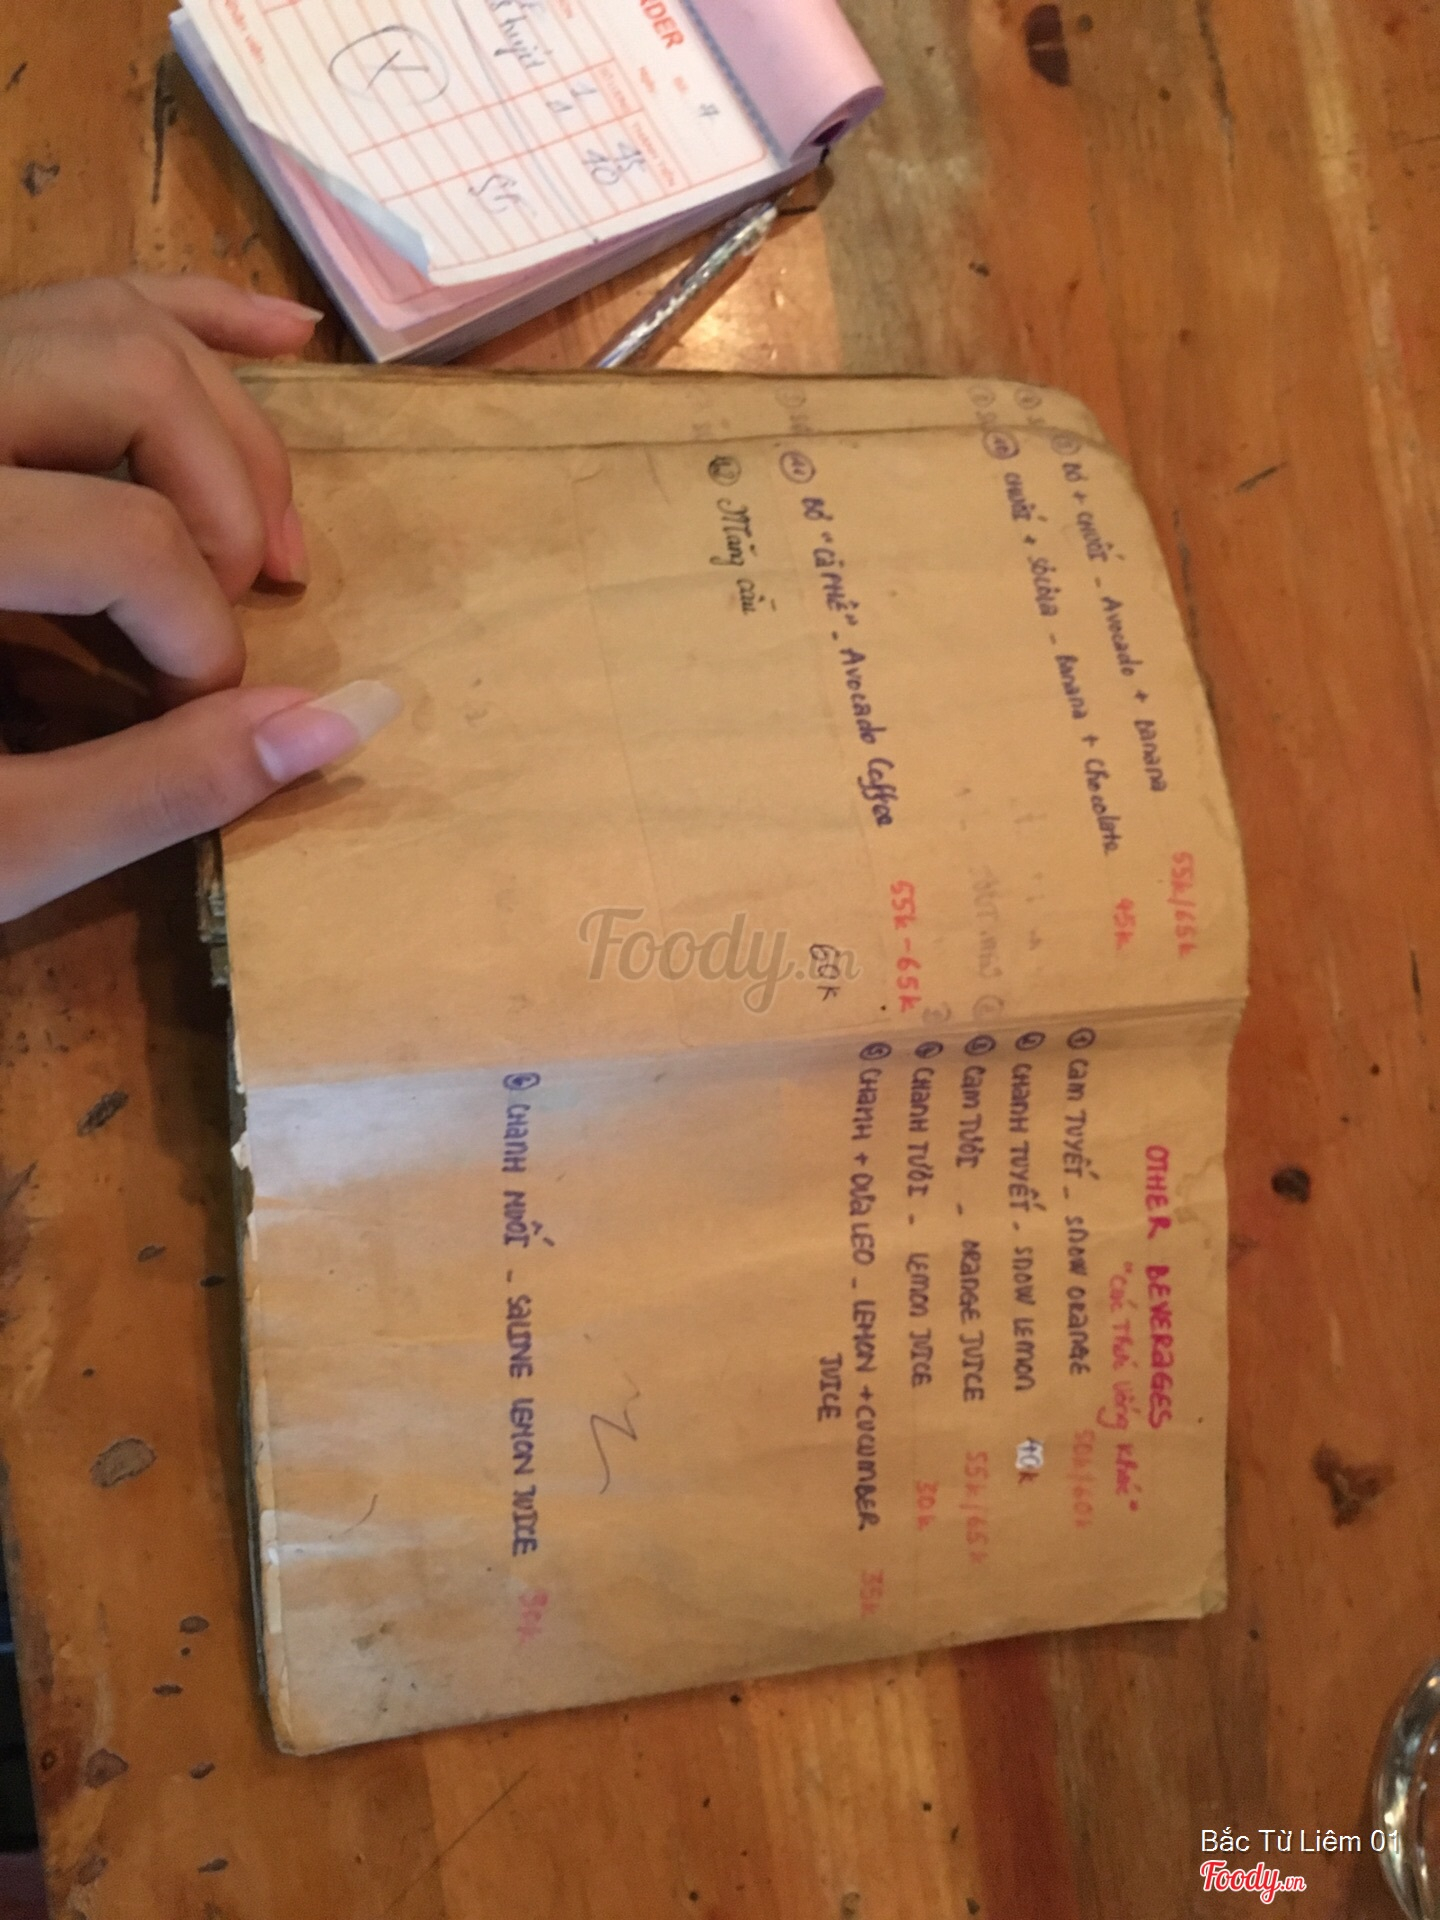 Bơ + CHUỐI - Avocado + Banana 55k/65k
⑩ CHUỐI + SÔCÔLA - Banana + Chocolate 45k
⑪ Bơ "CÀ PHÊ" - Avocado Coffee 55k - 65k
⑫ Mãng cầu 60k
OTHER BEVERAGES
"Các Thức Uống Khác"
① CAM TUYẾT - SNOW ORANGE 50k/60k
② CHANH TUYẾT - SNOW LEMON 40k
③ CAM TƯƠI - ORANGE JUICE 55k/65k
④ CHANH TƯƠI - LEMON JUICE 30k
⑤ CHANH + DƯA LEO - LEMON + CUCUMBER 35k
JUICE
⑥ CHANH MUỐI - SALINE LEMON JUICE 30k
Foody.vn
Bắc Từ Liêm 01
Foody.vn